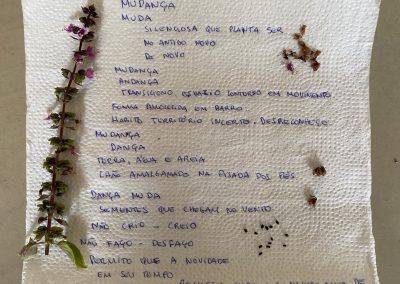 MUDANÇA
MUDA
SILENCIOSA QUE PLANTA SER
NO ANTIGO NOVO
DE NOVO
MUDANÇA
ANDANÇA
TRANSIÇÃO, ESPAÇO CONTORNO EM MOVIMENTO
FORMA AMOLECIDA EM BARRO.
HABITO TERRITÓRIO INCERTO. DESRECONHEÇO
MUDANÇA
DANÇA
TERRA, ÁGUA E AREIA
CHÃO AMALGAMADO NA PISADA DOS PÉS
DANÇA MUDA
SEMENTES QUE CHEGAM NO VENTO
NÃO CRIO - CREIO
NÃO FAÇO - DESFAÇO
PERMITO QUE A NOVIDADE
EM SEU TEMPO